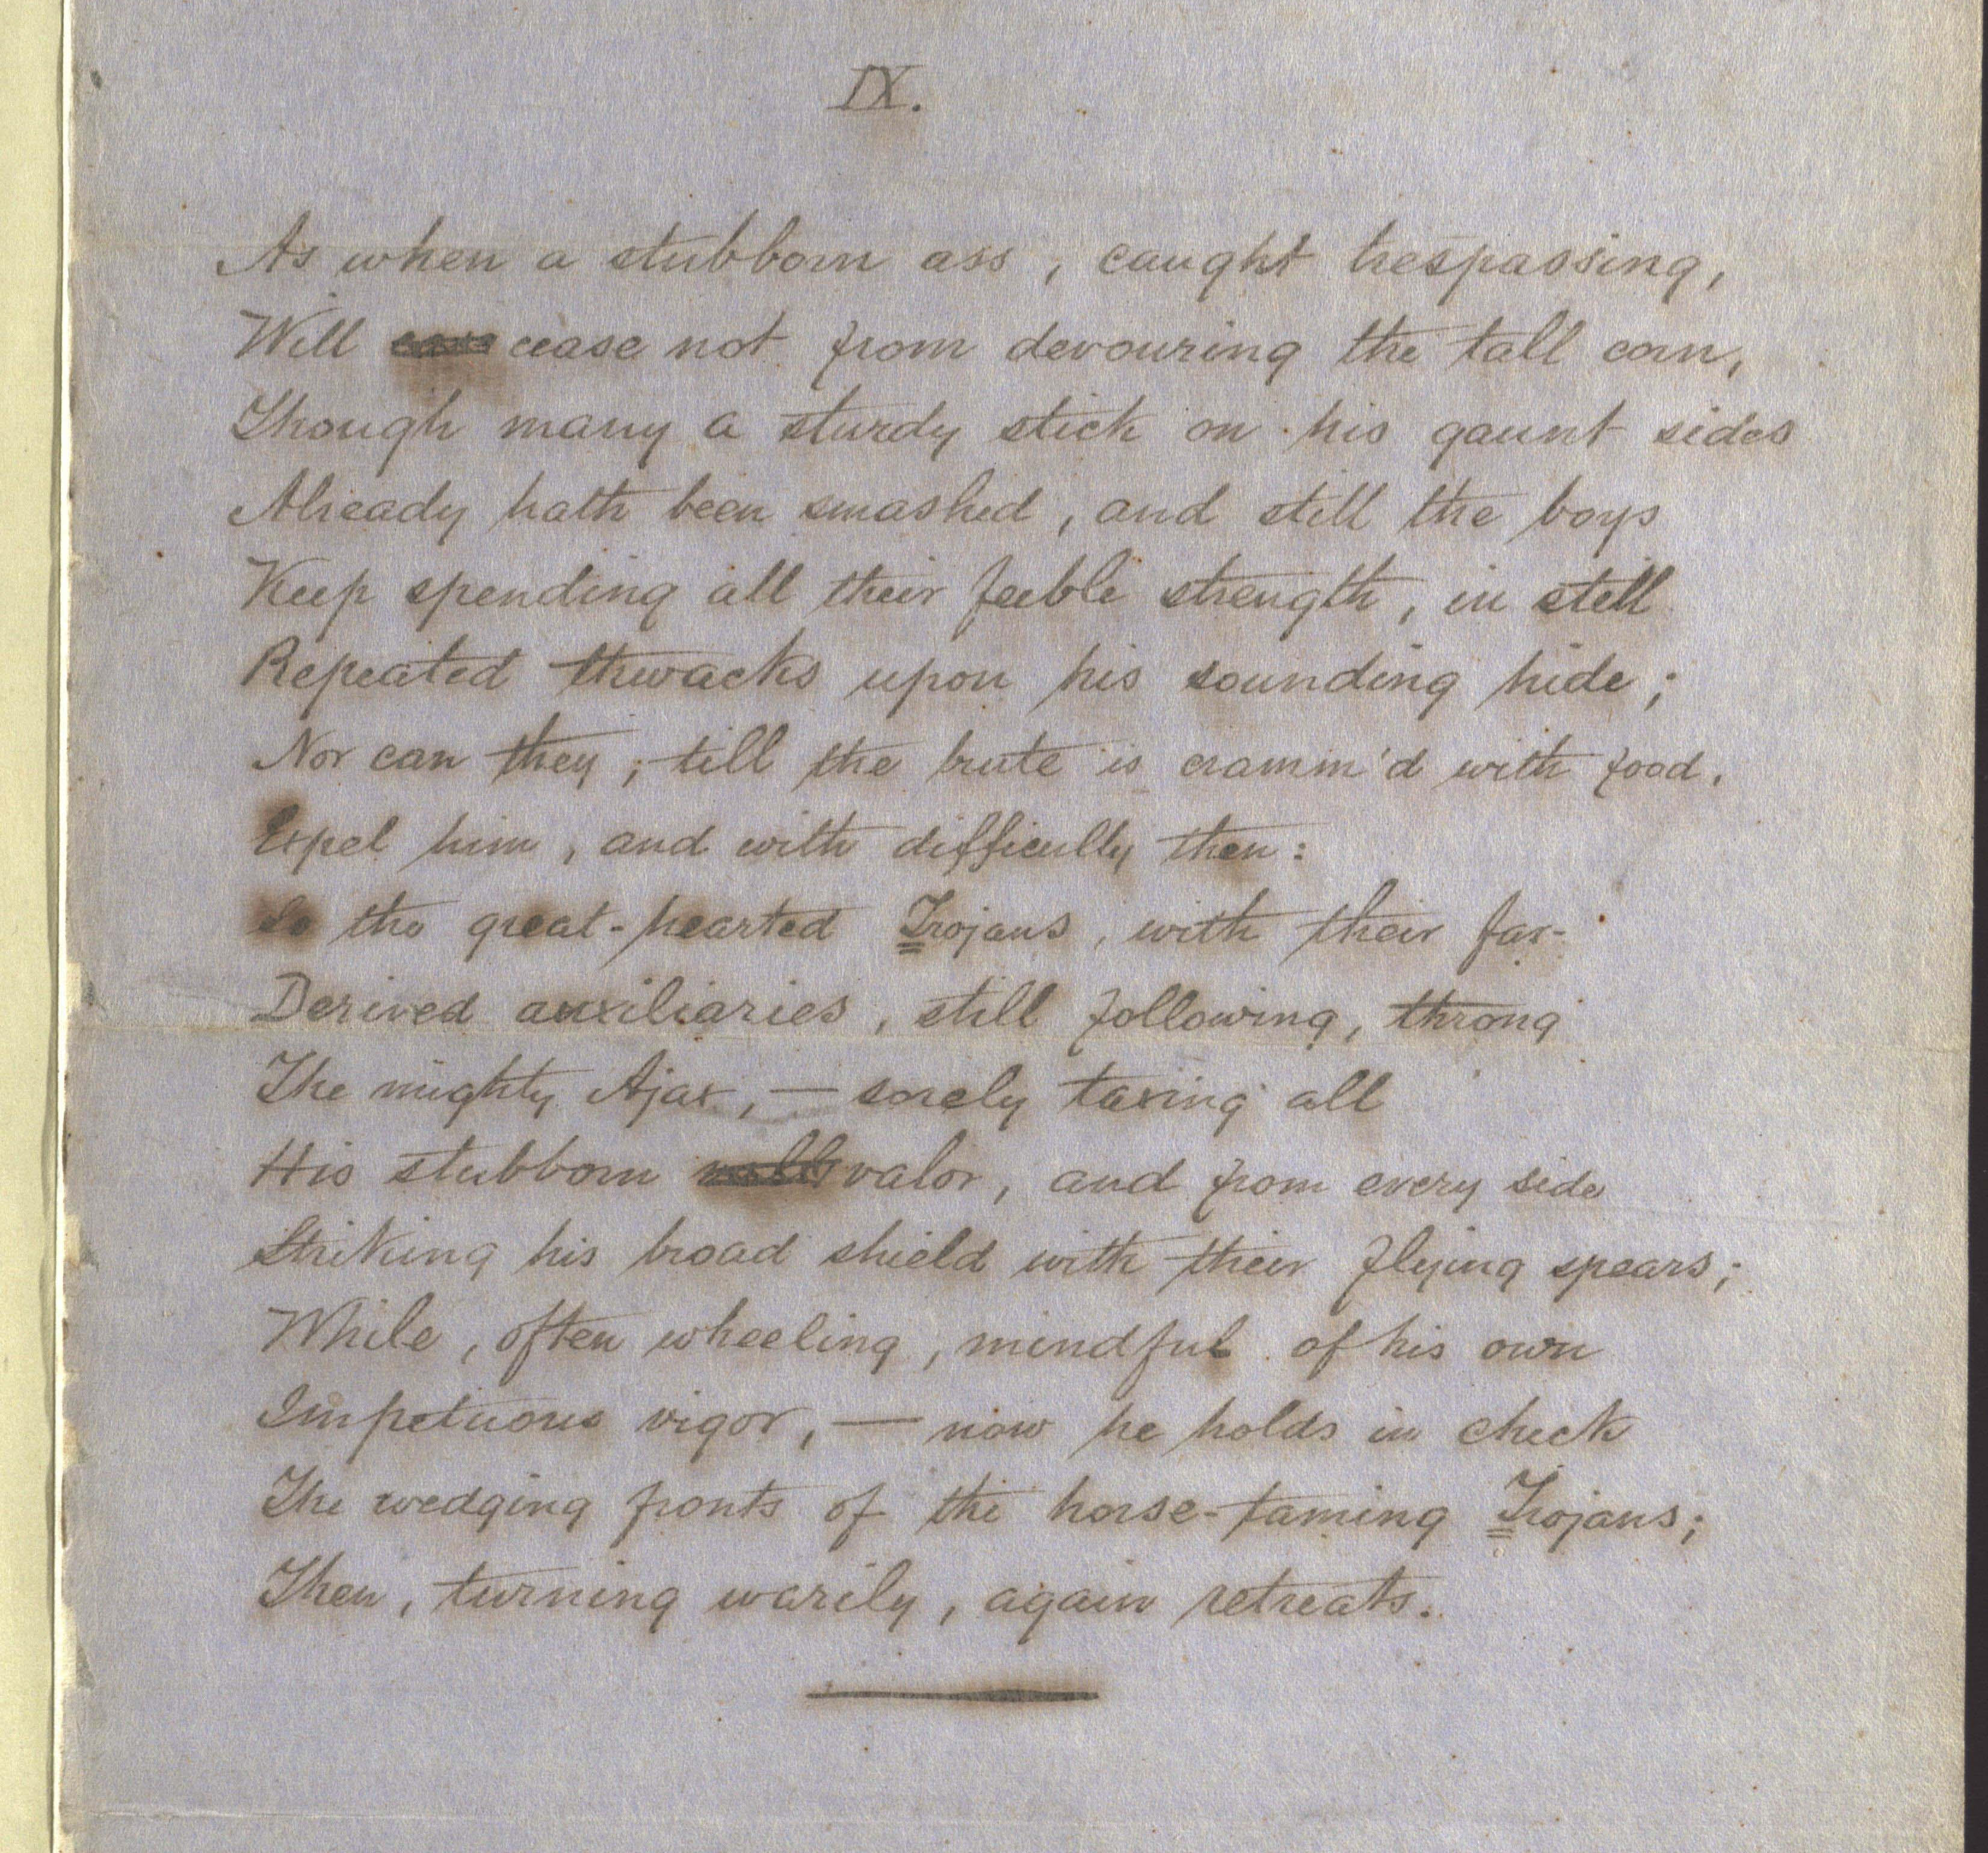 IX.
As when a stubborn ass, caught trespassing,
Will cease not from devouring the tall corn,
Though many a sturdy stick on his gaunt sides
Already hath been smashed, and still the boys
Keep spending all their feeble strength, in still
Repeated thwacks upon his sounding hide;
Nor can they, till the brute is cramm'd with food,
Expel him, and with difficulty then:
So the great-hearted Trojans, with their far-
Derived auxiliaries, still following, throng
The mighty Ajax, — sorely taxing all
His stubborn valor, and from every side
Striking his broad shield with their flying spears;
While, often wheeling, mindful of his own
Impetuous vigor, — now he holds in check
The wedging fronts of the horse-taming Trojans;
Then, turning warily, again retreats.